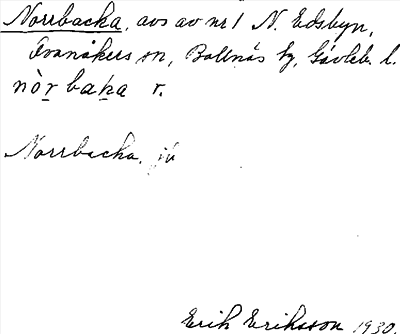 Norrbacka, avs av nr 1 N. Edsbyn,
Ovanåkers sn, Bollnäs tg, Gävleb. l.
nòr̠ baḵa r.
Norrbacka, ju
Erik Eriksson 1930.